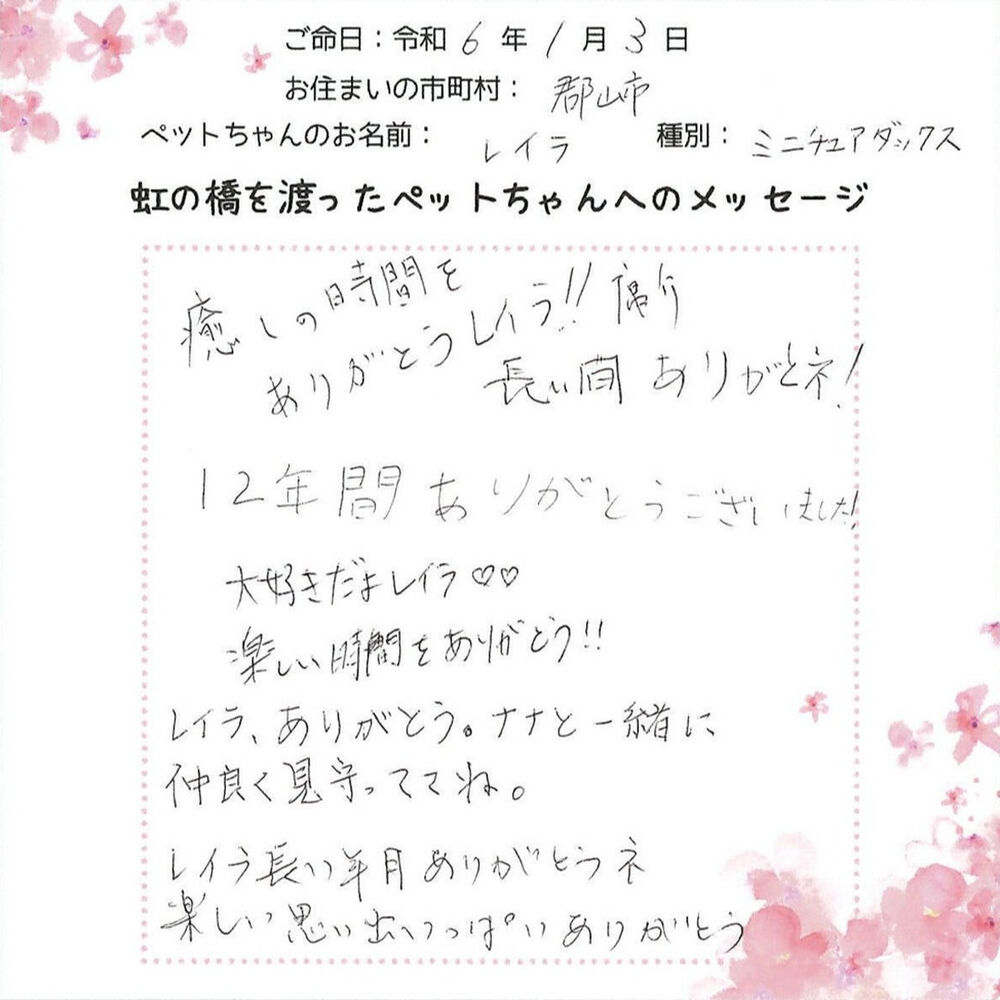 ご命日：令和 6 年 1 月 3 日
お住まいの市町村： 郡山市
ペットちゃんのお名前： レイラ 種別： ミニチュアダックス
虹の橋を渡ったペットちゃんへのメッセージ
癒しの時間を
ありがとうレイラ!!
長い間 ありがとネ!
12年間ありがとうございました!
大好きだよレイラ♡♡
楽しい時間をありがとう!!
レイラ、ありがとう。ナナと一緒に
仲良く見守っててね。
レイラ長い年月ありがとうネ
楽しい思い出いっぱいありがとう